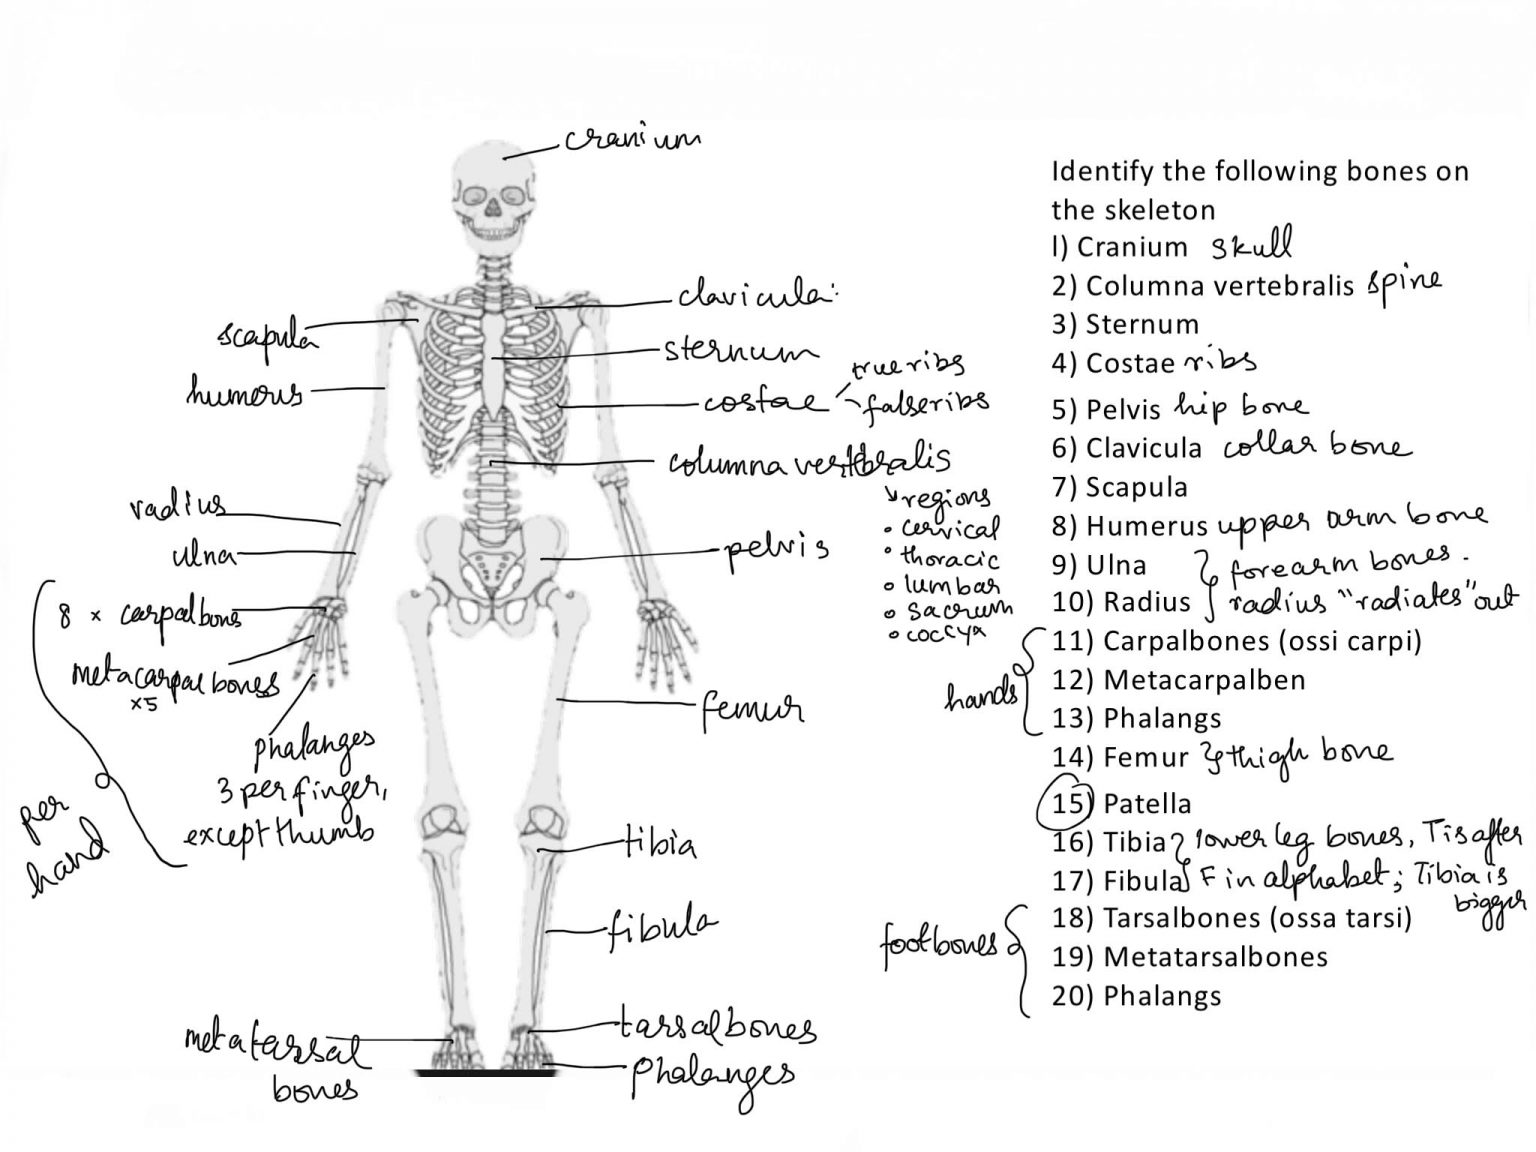 cranium
clavicula:
scapula
sternum
true ribs
humerus
costae
false ribs
columna vertebralis
regions
• cervical
• thoracic
• lumbar
• sacrum
• coccyx
radius
ulna
pelvis
8 x carpal bons
metacarpal bones
x5
phalanges
3 per finger,
except thumb
per
hand
femur
tibia
fibula
metatarsal
bones
tarsal bones
Phalanges
Identify the following bones on
the skeleton
l) Cranium skull
2) Columna vertebralis spine
3) Sternum
4) Costae ribs
5) Pelvis hip bone
6) Clavicula collar bone
7) Scapula
8) Humerus upper arm bone
9) Ulna } forearm bones.
10) Radius } radius "radiates" out
11) Carpalbones (ossi carpi)
12) Metacarpalben
hands
13) Phalangs
14) Femur } thigh bone
15) Patella
16) Tibia } lower leg bones, T is after
17) Fibula } F in alphabet; Tibia is
bigger
18) Tarsalbones (ossa tarsi)
foot bones
19) Metatarsalbones
20) Phalangs